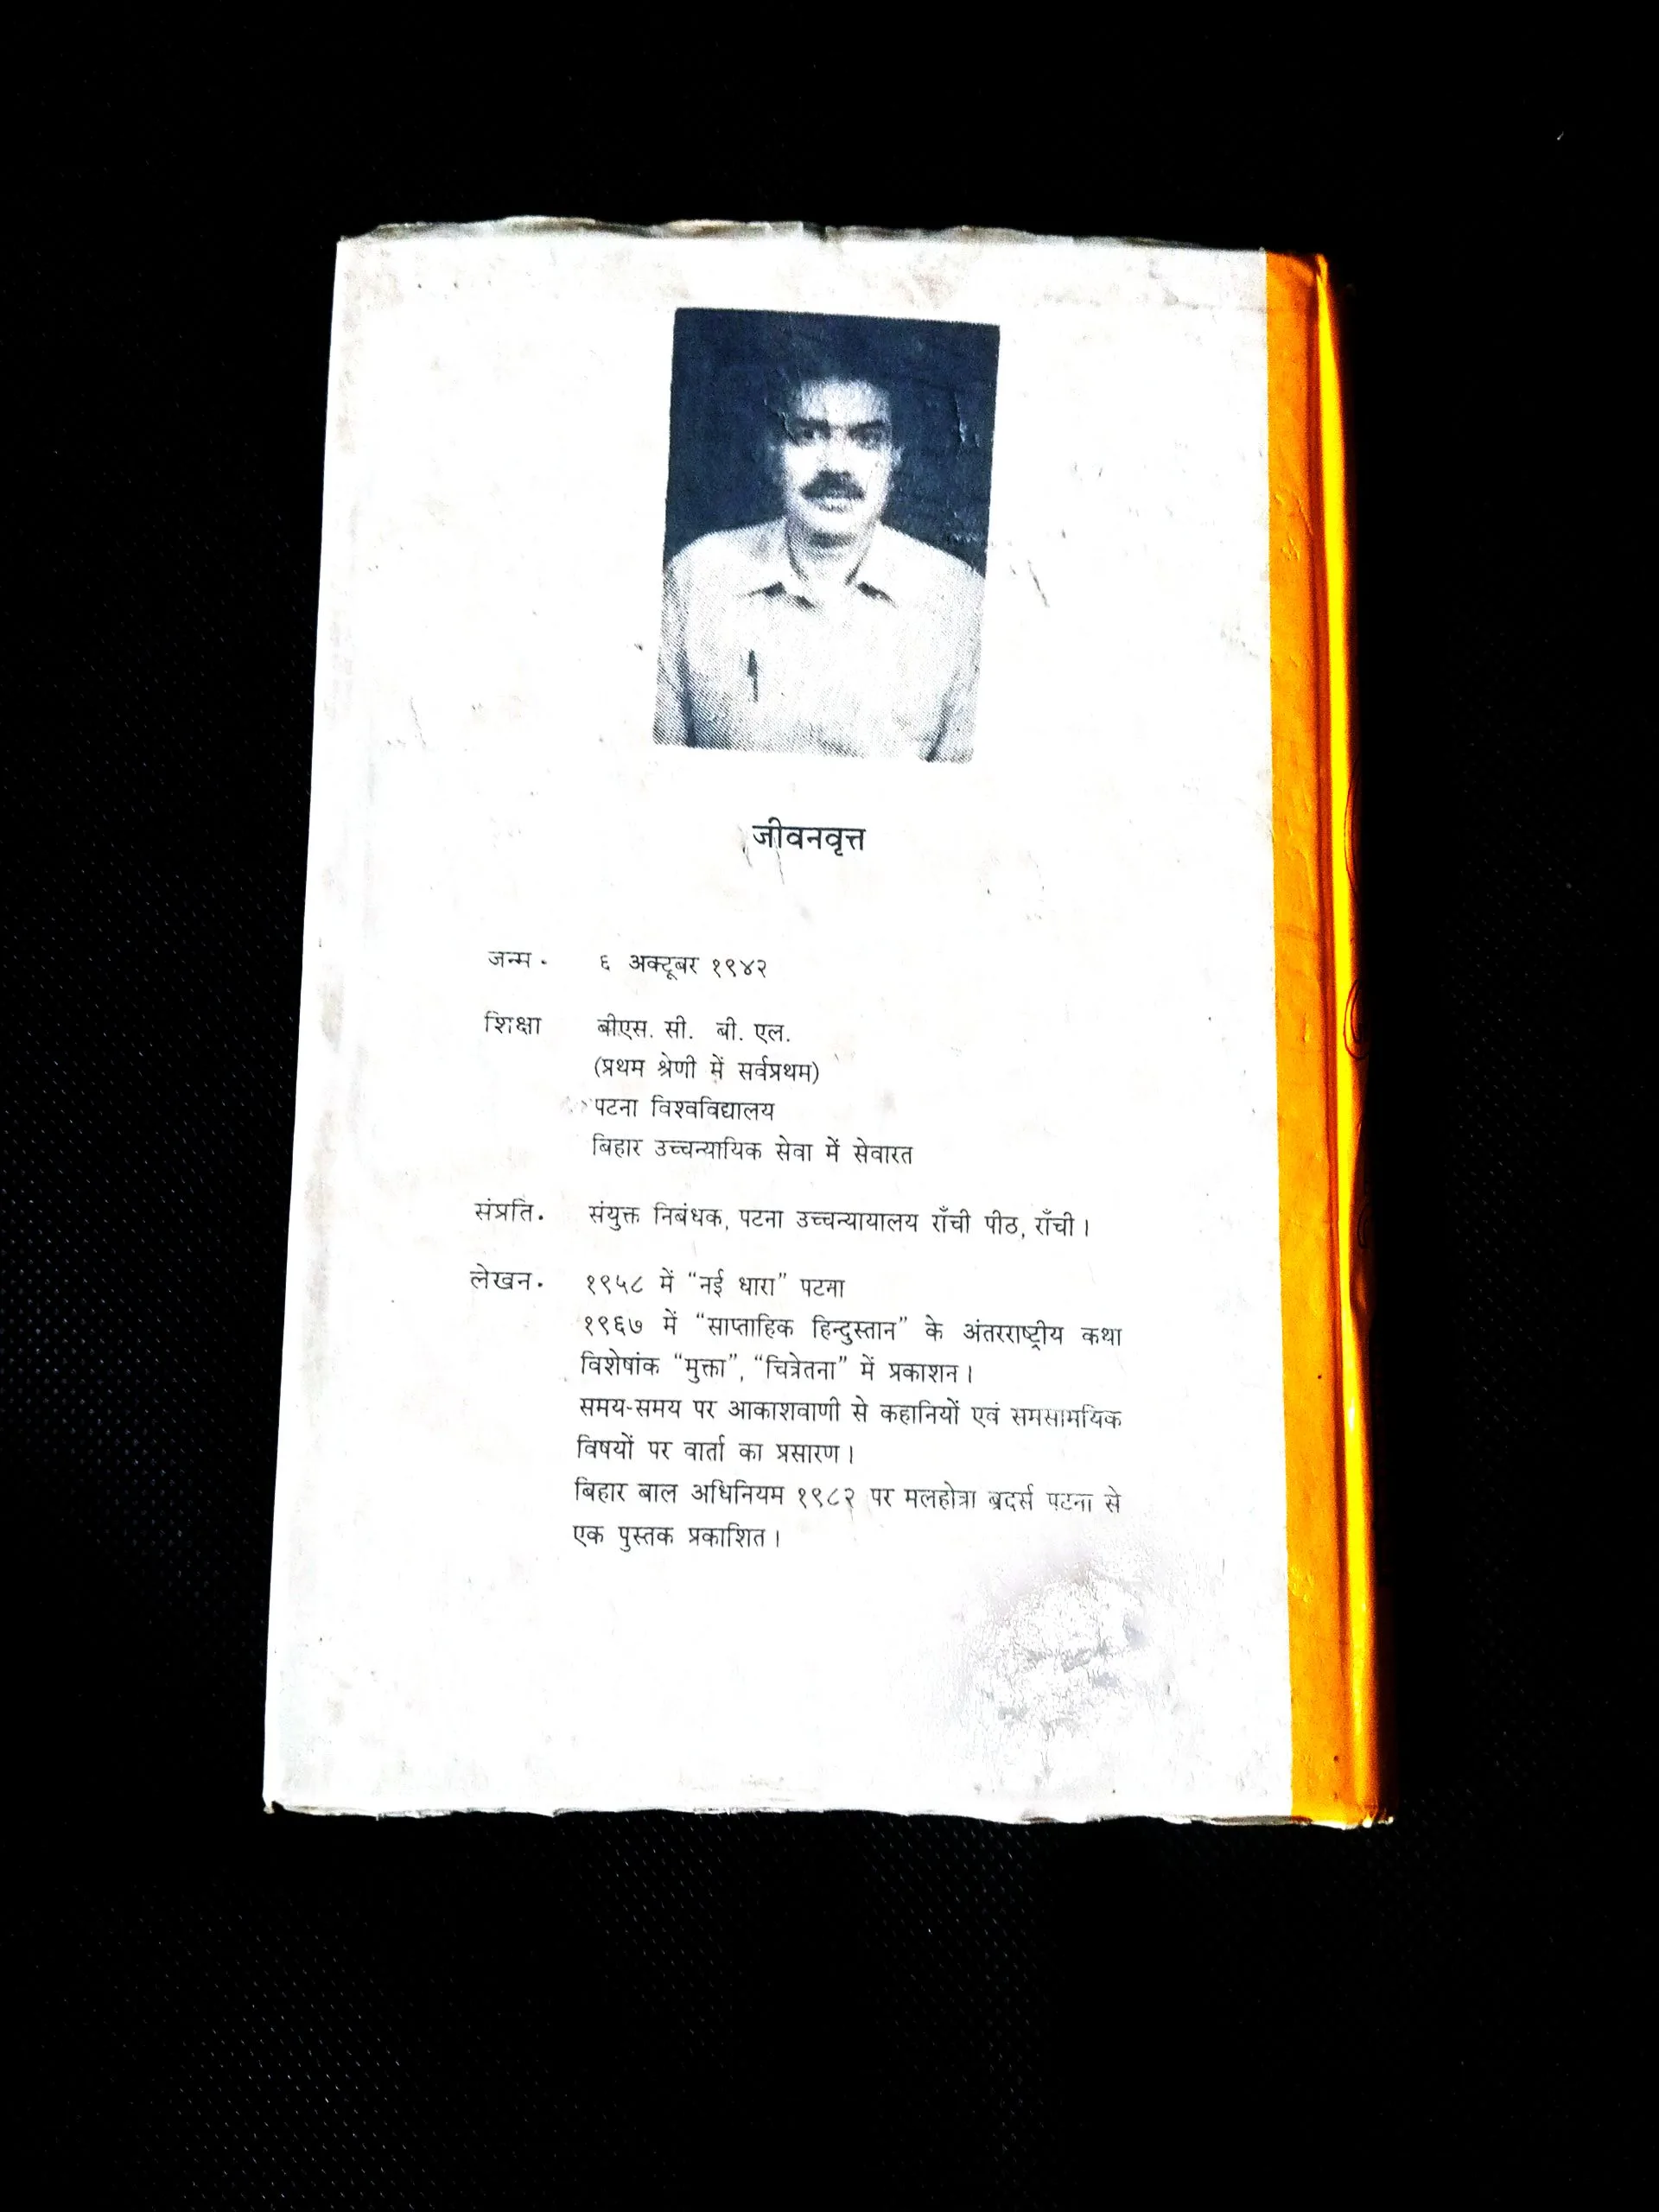 जीवनवृत्त
जन्म · ६ अक्टूबर १९४२
शिक्षा बीएस. सी. बी. एल.
(प्रथम श्रेणी में सर्वप्रथम)
पटना विश्वविद्यालय
बिहार उच्चन्यायिक सेवा में सेवारत
संप्रति · संयुक्त निबंधक, पटना उच्चन्यायालय राँची पीठ, राँची ।
लेखन · १९५८ में “नई धारा” पटना
१९६७ में “साप्ताहिक हिन्दुस्तान” के अंतरराष्ट्रीय कथा
विशेषांक “मुक्ता”, “चित्रेतना” में प्रकाशन ।
समय-समय पर आकाशवाणी से कहानियों एवं समसामयिक
विषयों पर वार्ता का प्रसारण ।
बिहार बाल अधिनियम १९८२ पर मलहोत्रा ब्रदर्स पटना से
एक पुस्तक प्रकाशित ।